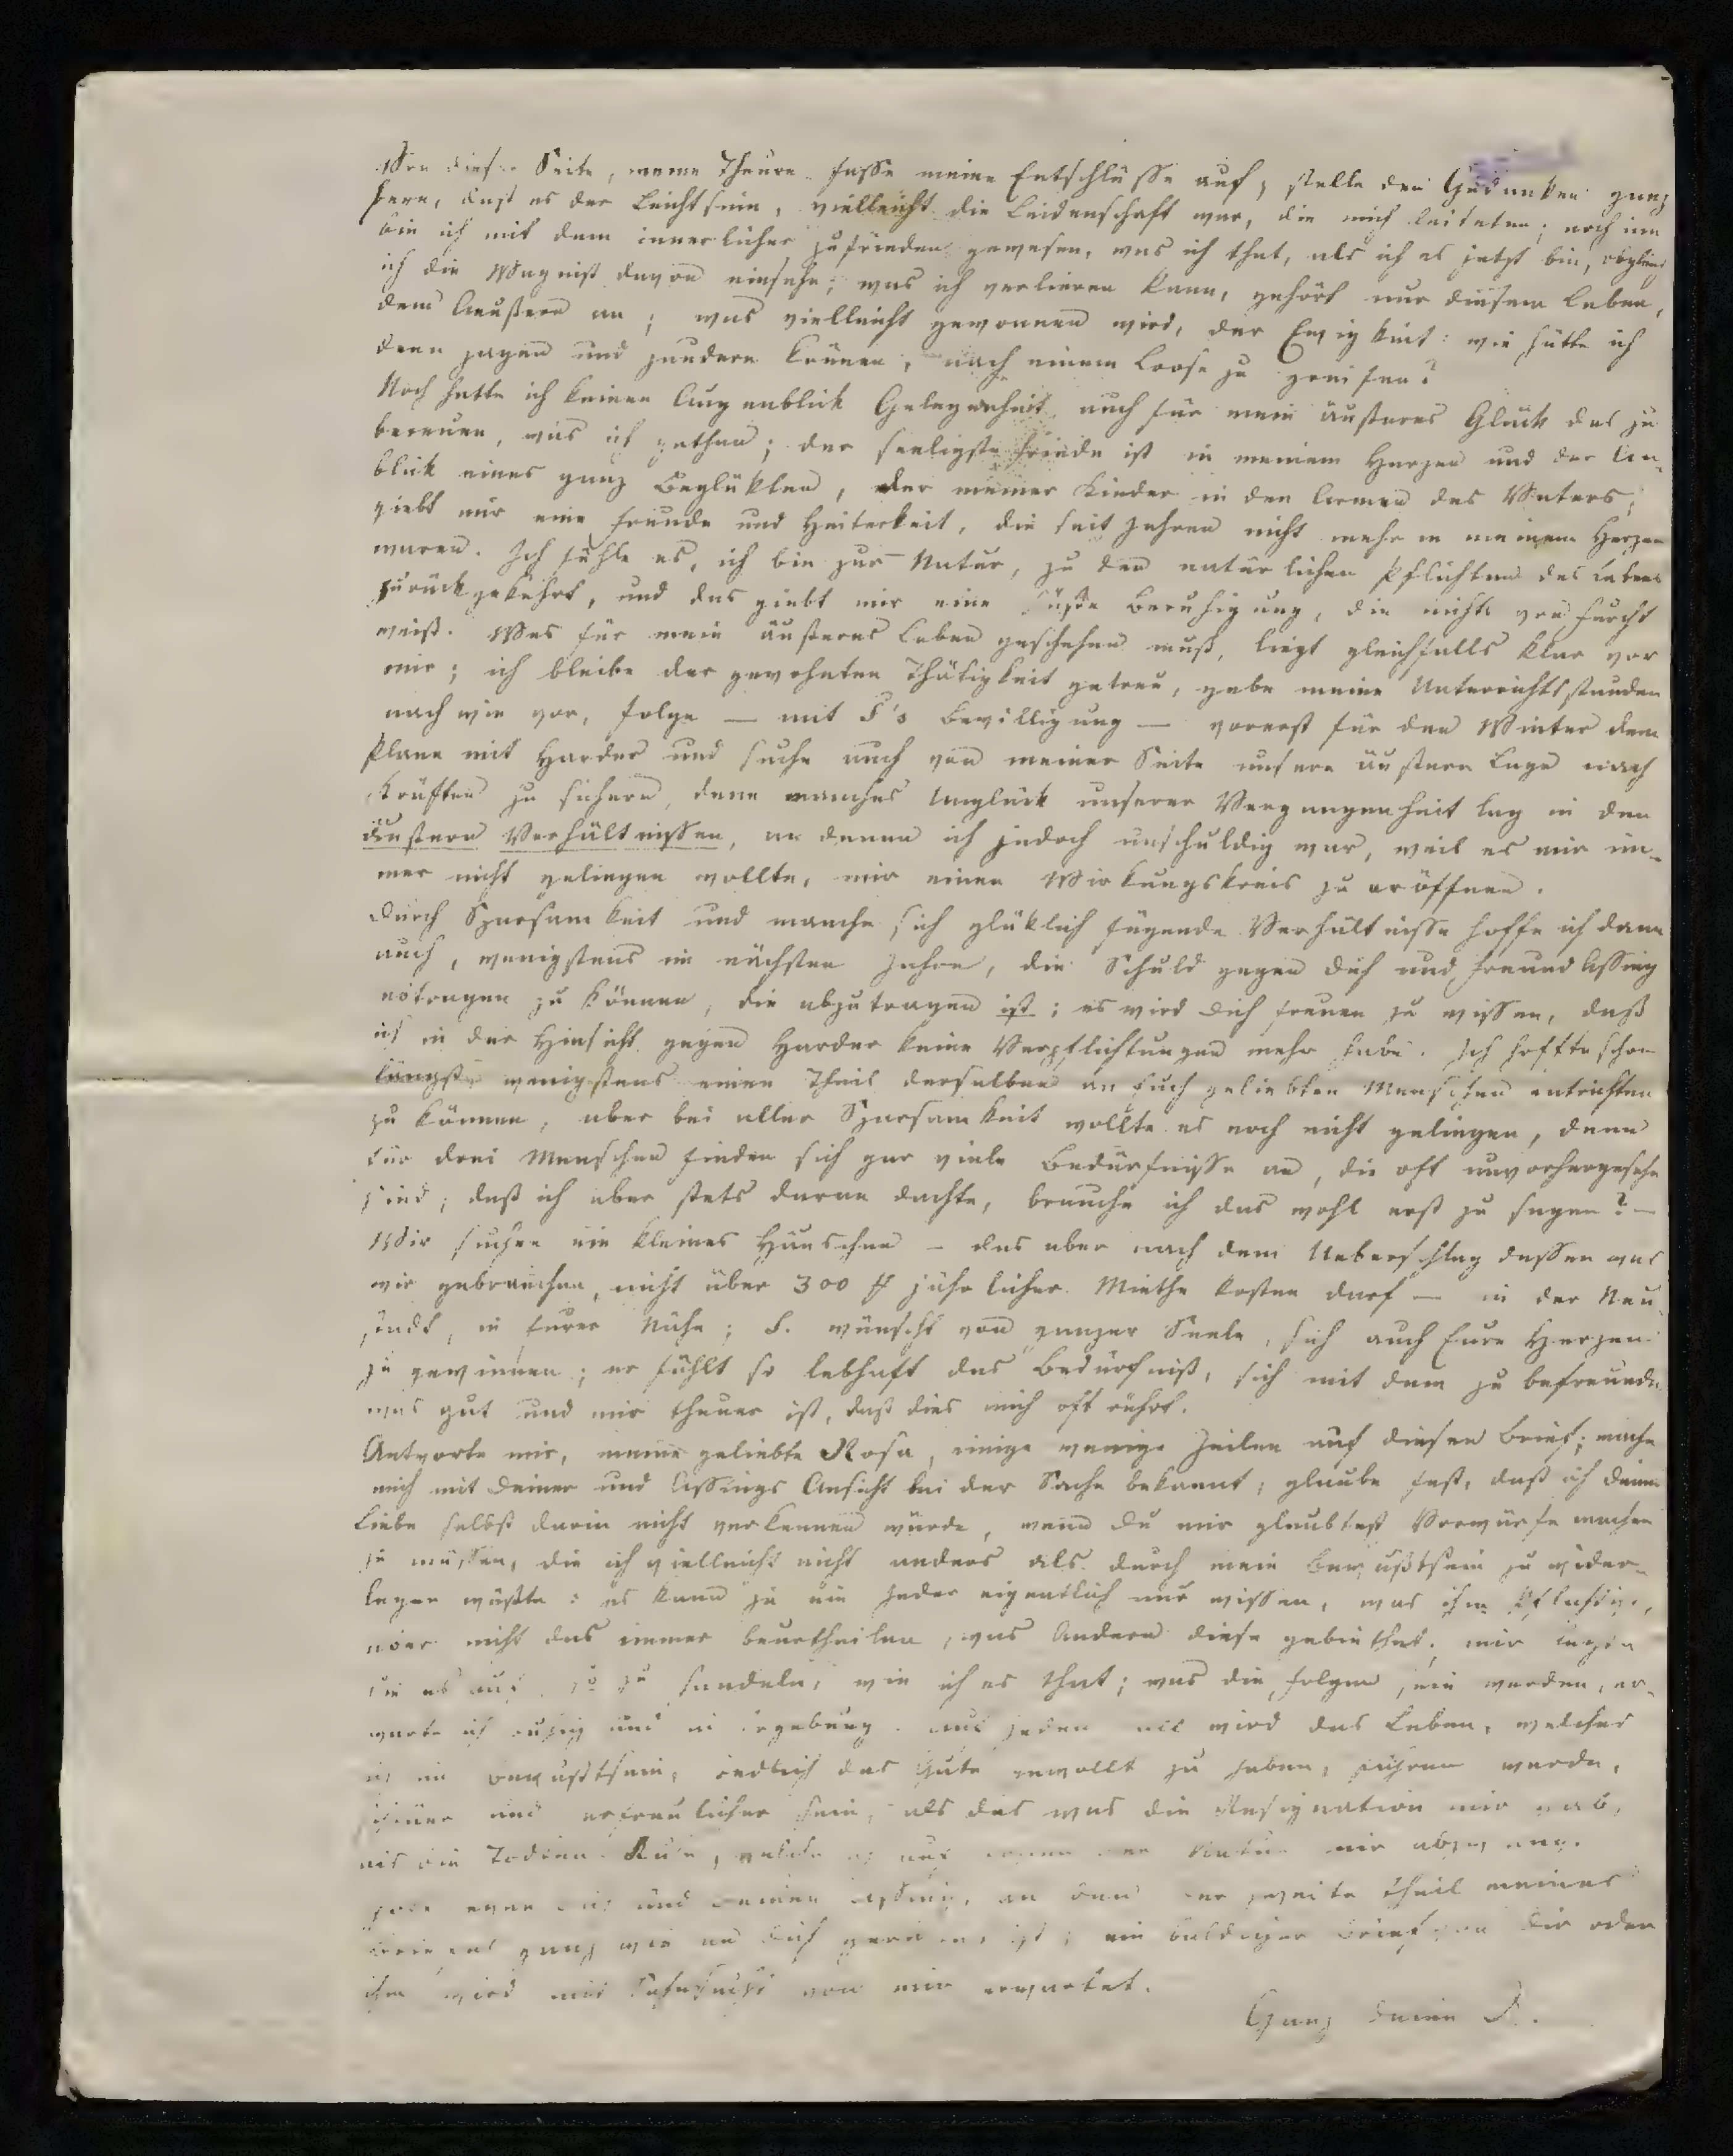 Von dieser Seite, meine Theure fasse meine Entschlüsse auf, stelle den Gedanken ganz
fern, daß es der Leichtsinn, vielleicht die Leidenschaft war, die mich leiteten; noch nie
bin ich mit dem innerlicher zufrieden gewesen, was ich that, als ich es jetzt bin, obgleich
ich die Wagniß davon einsehe; was ich verlieren kann, gehört nur diesem Leben,
dem Aeußern an; was vielleicht gewonnen wird, der Ewigkeit: wie hätte ich
denn zagen und zaudern können, nach einem Loose zu greifen?
Noch hatte ich keinen Augenblick Gelegenheit auch für mein äußeres Glück das zu
bereuen, was ich gethan; der seeligste Friede ist in meinem Herzen und der An-
blick eines ganz Beglükten, der meiner Kinder in den Armen des Vaters,
giebt mir eine Freude und Heiterkeit, die seit Jahren nicht mehr in meinem Herzen
waren. Ich fühle es, ich bin zur Natur, zu den natürlichen Pflichten des Lebens
zurückgekehrt, und das giebt mir eine süße Beruhigung, die nichts von Furcht
weiß. Was für mein äußeres Leben geschehen muß, liegt gleichfalls klar vor
mir; ich bleibe der gewohnten Thätigkeit getreu, gebe meine Unterrichtsstunden
nach wie vor, folge — mit F's Bewilligung — vorerst für den Winter dem
Plane mit Harder und suche auch von meiner Seite unsere äußere Lage nach
Kräften zu sichern, denn manches Unglück unserer Vergangenheit lag in den
äußern Verhältnissen, an denen ich jedoch unschuldig war, weil es mir im-
mer nicht gelingen wollte, mir einen Wirkungskreis zu eröffnen.
Durch Sparsamkeit und manche sich glüklich fügende Verhältnisse hoffe ich dann
auch, wenigstens im nächsten Jahre, die Schuld gegen Dich und Freund Assing
abtragen zu können, die abzutragen ist; es wird Dich freuen zu wissen, daß
ich in der Hinsicht gegen Harder keine Verpflichtungen mehr habe. Ich hoffte schon
längst wenigstens einen Theil derselben an Euch geliebten Menschen entrichten
zu können, aber bei aller Sparsamkeit wollte es noch nicht gelingen, denn
für drei Menschen finden sich gar viele Bedürfnisse an, die oft unvorhergesehen
sind; daß ich aber stets daran dachte, brauche ich das wohl erst zu sagen? —
Wir suchen ein kleines Häuschen — das aber nach dem Ueberschlag dessen was
wir gebrauchen, nicht über 300 # jährlicher Miethe kosten darf — in der Neu-
stadt, in Eurer Nähe; F. wünscht von ganzer Seele, sich auch Eure Herzen
zu gewinnen; er fühlt so lebhaft das Bedürfniß, sich mit dem zu befreunden
was gut und mir theuer ist, daß dies mich oft rührt.
Antworte mir, meine geliebte Rosa, einige wenige Zeilen auf diesen Brief; mache
mich mit Deiner und Assings Ansicht bei der Sache bekannt; glaube fest, daß ich Deine
Liebe selbst darin nicht verkennen würde, wenn Du mir glaubtest Vorwürfe machen
zu müssen, die ich vielleicht nicht anders als durch mein Bewußtsein zu wider-
legen wüßte: es kann ja ein Jeder eigentlich nur wissen, was ihm Pflicht ist,
aber nicht das immer beurtheilen, was Andern diese gebiethet; mir legte
sie es auf, so zu handeln, wie ich es that; was die Folgen sein werden, er-
warte ich ruhig und in Ergebung. Auf jeden Fall wird das Leben, welches
ich im Bewußtsein, redlich das Gute gewollt zu haben, führen werde,
schöner und erfreulicher sein, als das was die Resignation mir gab,
als die Todten Ruhe, welche
und an den der zweite Theil meines
ganz wie an Dich gerichtet ist; ein baldiger Brief von Dir oder
ihm wird mit Sehnsucht von mir erwartet.
Ganz Deine D.